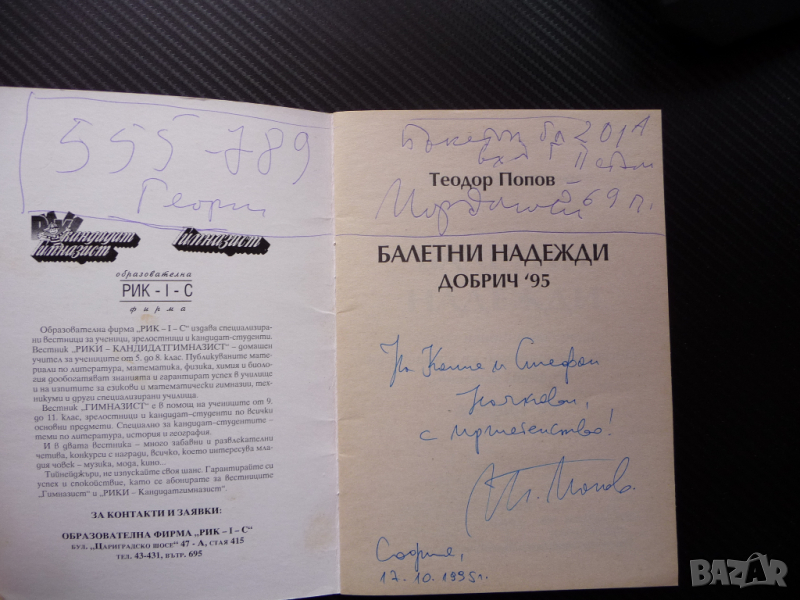 555-789
Георги
РИКИ
кандидат
гимназист
гимназист
образователна
РИК - I - С
фирма
Образователна фирма „РИК – I – С“ издава специализирани вестници за ученици, зрелостници и кандидат-студенти.
Вестник „РИКИ – КАНДИДАТГИМНАЗИСТ“ – домашен
учител за учениците от 5. до 8. клас. Публикуваните материали по литература, математика, физика, химия и биология дообогатяват знанията и гарантират успех в училище
и на изпитите за езикови и математически гимназии, техникуми и други специализирани училища.
Вестник „ГИМНАЗИСТ“ е в помощ на учениците от 9.
до 11. клас, зрелостници и кандидат-студенти по всички
основни предмети. Специално за кандидат-студентите –
теми по литература, история и география.
И в двата вестника – много забавни и развлекателни
четива, конкурси с награди, всичко, което интересува младия човек – музика, мода, кино...
Тийнейджъри, не изпускайте своя шанс. Гарантирайте си
успех и спокойствие, като се абонирате за вестниците
„Гимназист“ и „РИКИ – Кандидатгимназист“.
ЗА КОНТАКТИ И ЗАЯВКИ:
ОБРАЗОВАТЕЛНА ФИРМА „РИК – I – С“
БУЛ. „ЦАРИГРАДСКО ШОСЕ“ 47 - А, СТАЯ 415
ТЕЛ. 43-431, ВЪТР. 695
бл 201А
вх
Теодор Попов
69
БАЛЕТНИ НАДЕЖДИ
ДОБРИЧ ‘95
На Капие и Стефан
с приятелство!
Т. Попов
София,
17. 10. 1995г.
BAZAR